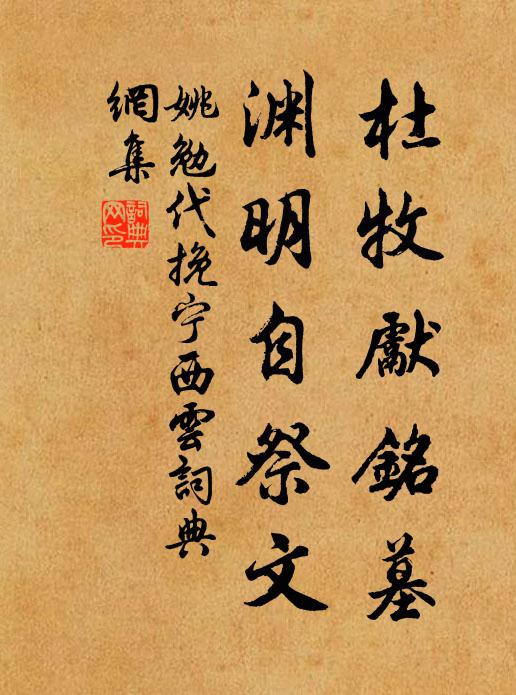 杜牧獻銘墓
渊明自祭文
姚勉代挽宁西雲詞典
網集
詞典
网印